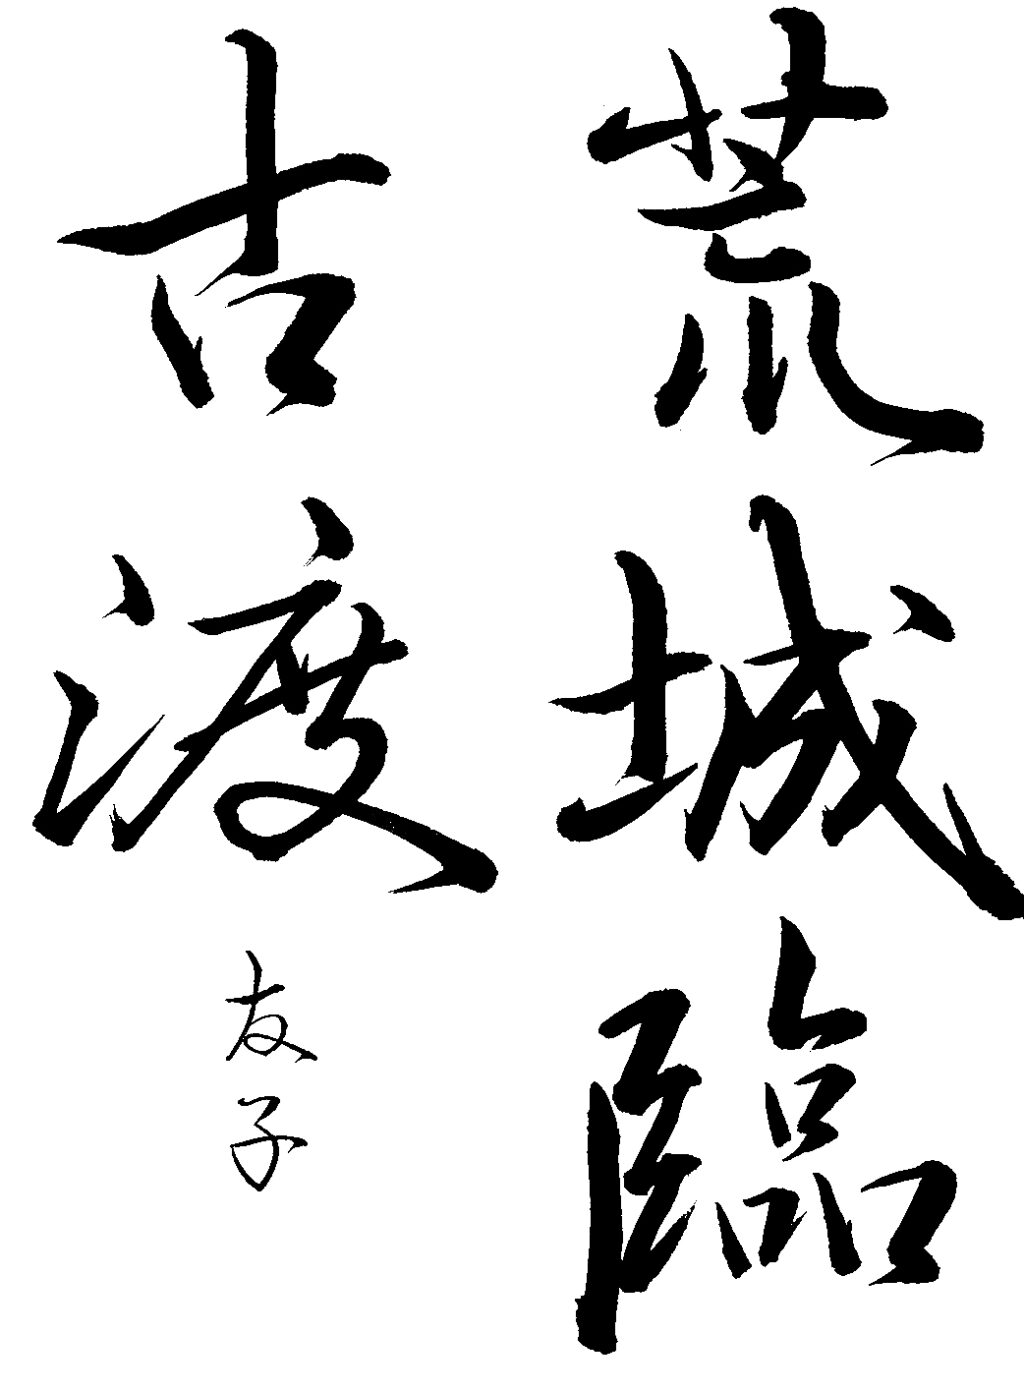 荒城臨
古渡
友子